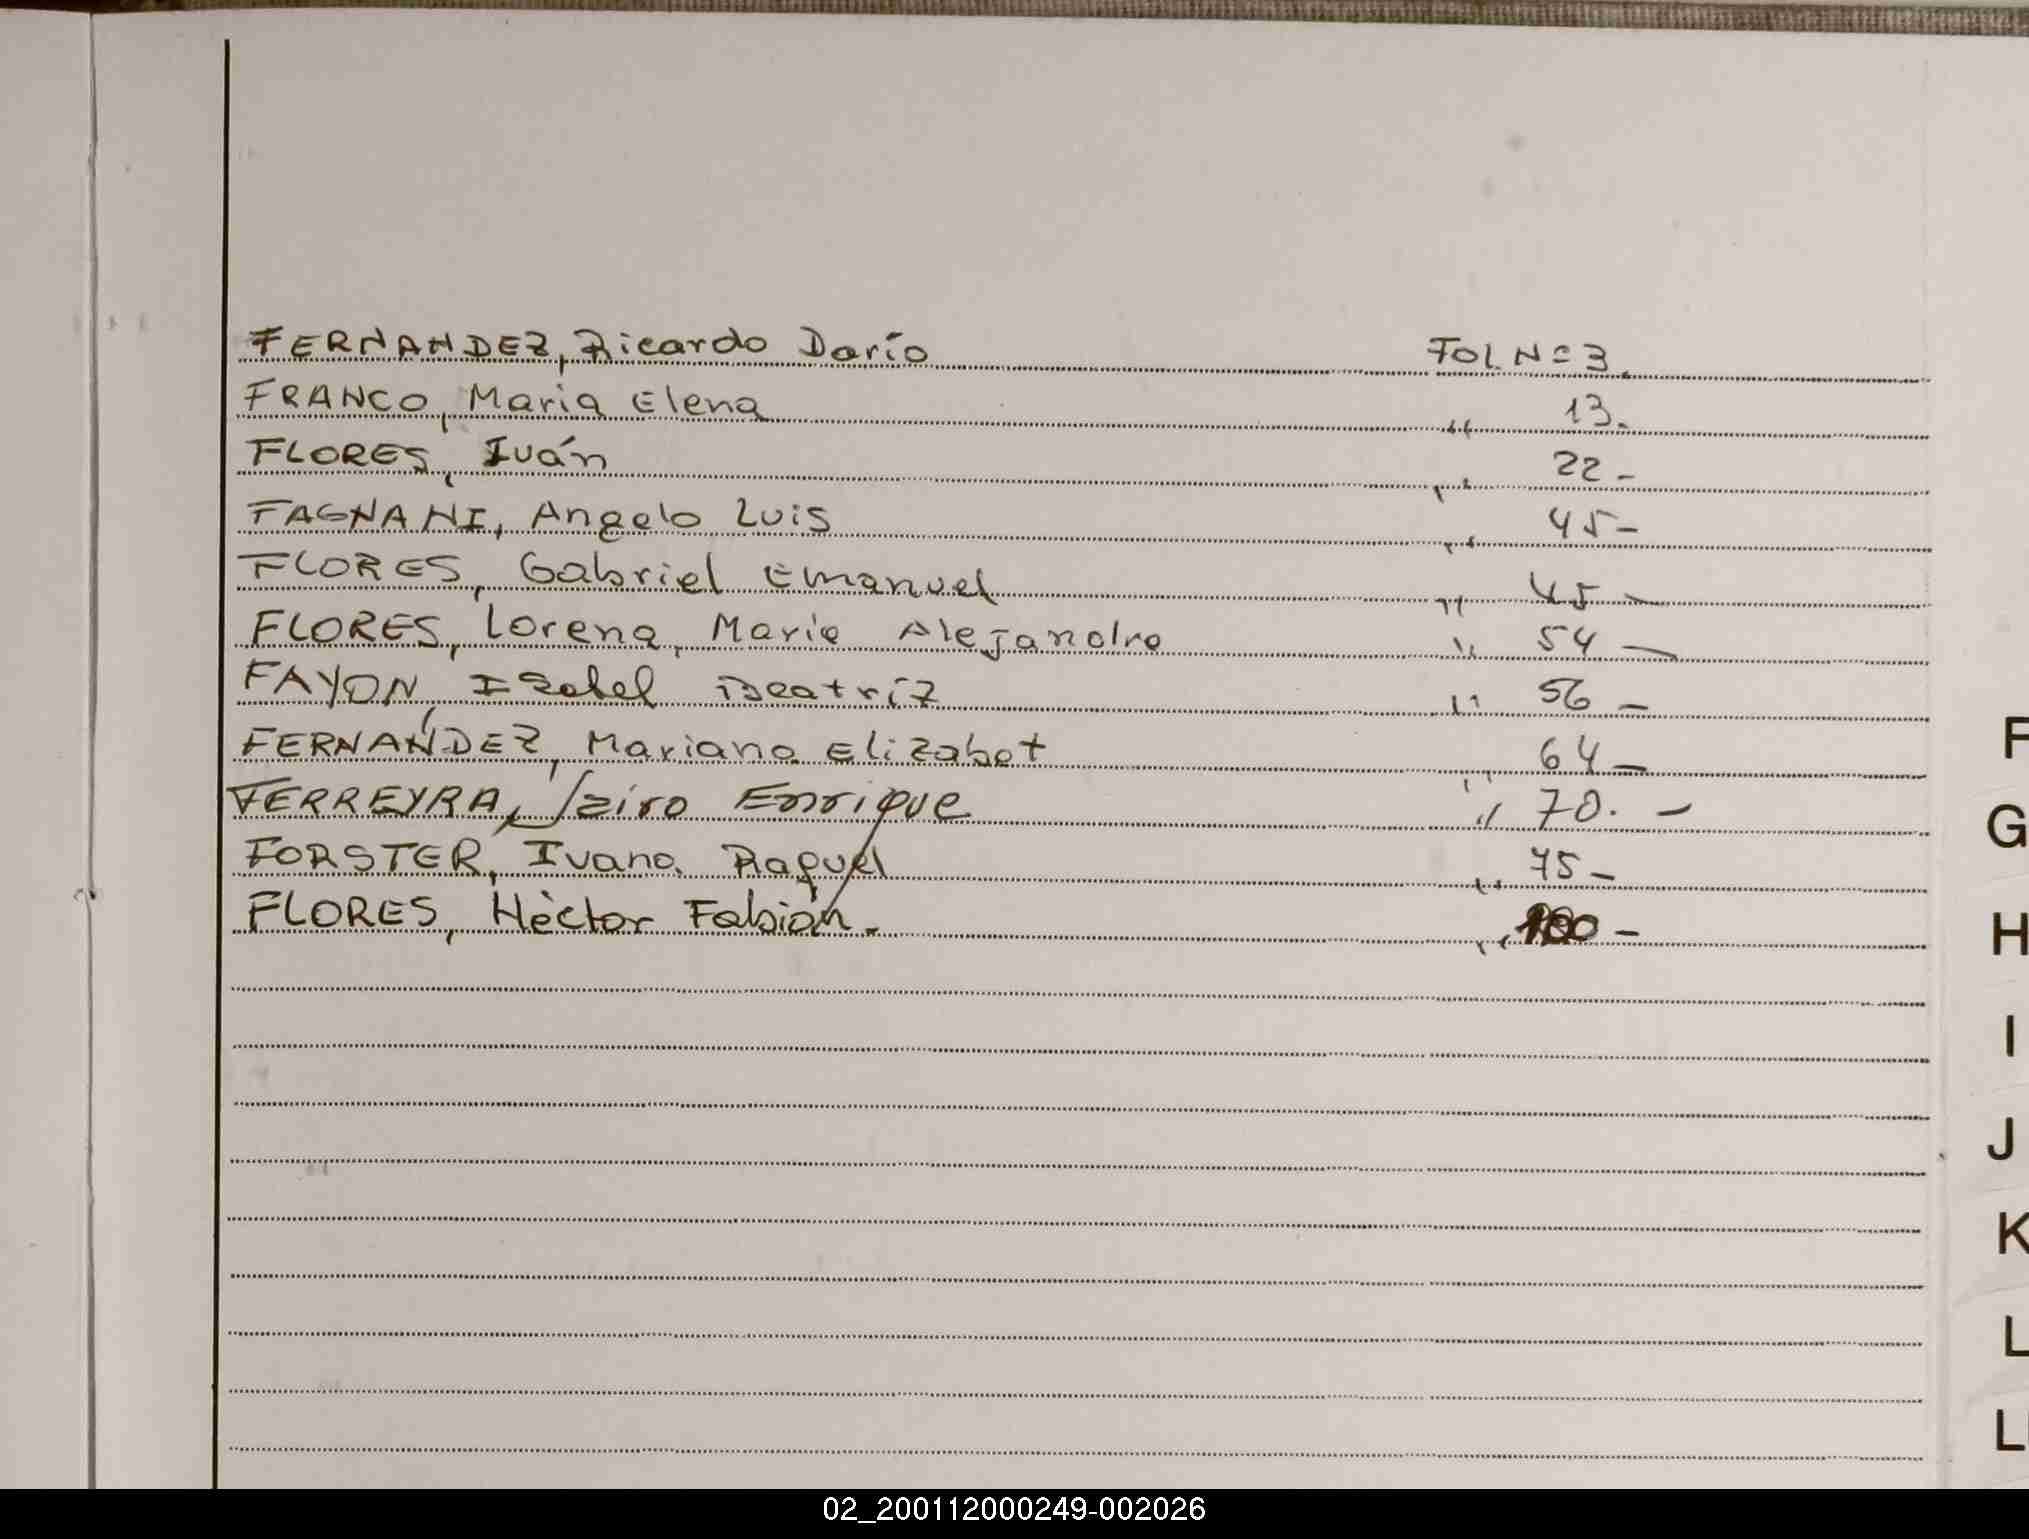 FERNANDEZ, Ricardo Darío FOL N= 3.
FRANCO, Maria Elena " 13.
FLORES, Iván " 22 -
FAGNANI, Angelo Luis " 45 -
FLORES, Gabriel Emanuel " 45 -
FLORES, Lorena, Maria Alejandra " 54 -
FAYON, Isabel Beatríz " 56 -
FERNÁNDEZ, Mariana Elizabet " 64 -
FERREYRA, Jairo Enrique " 70. -
FORSTER, Ivana Raquel " 75 -
FLORES, Hèctor Fabián. " 100 -
F
G
H
I
J
K
L
Ll
02_200112000249-002026